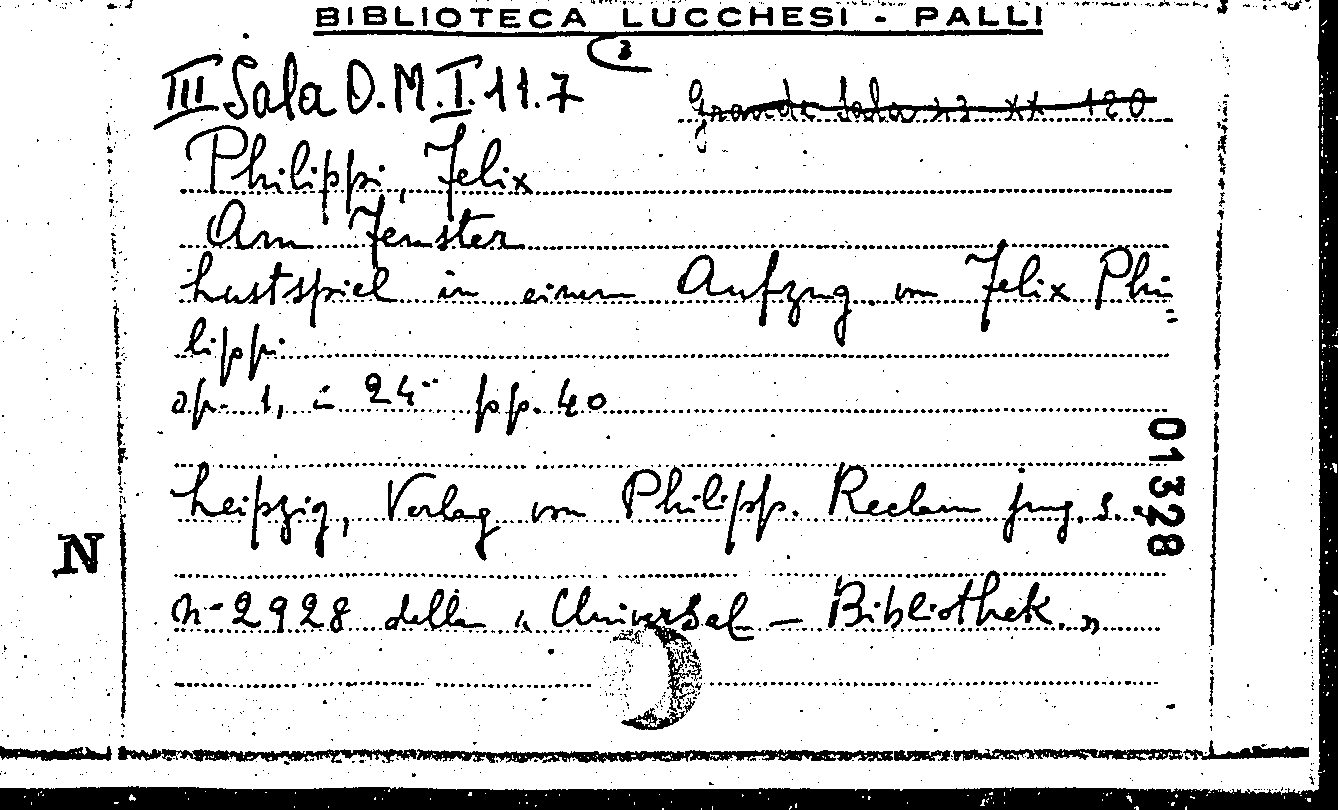 BIBLIOTECA LUCCHESI - PALLI
III Sala O.M.I.11.7 (3
Grande Sala 23 XX 120
Philippi, Felix
Am Fenster
Lustspiel in einem Aufzug von Felix Phi=
lippi
op. 1, in 24° pp. 40
Leipzig, Verlag von Philipp. Reclam jung. s.a.
01328
N
n° 2928 della "Universal - Bibliothek"